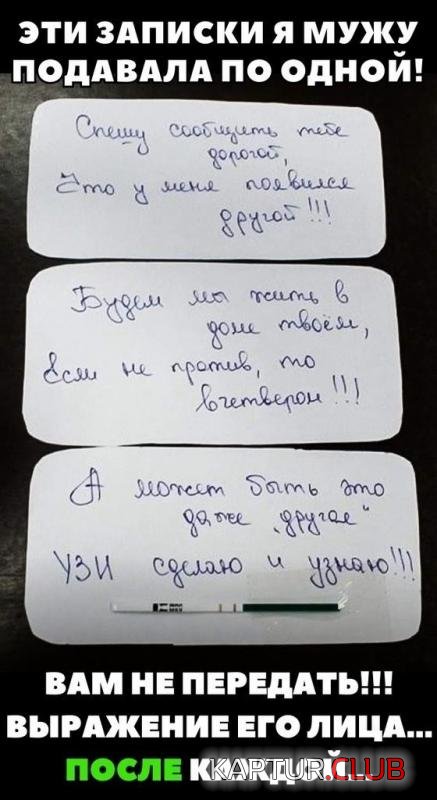 ЭТИ ЗАПИСКИ Я МУЖУ
ПОДАВАЛА ПО ОДНОЙ!
Спешу сообщить тебе
дорогой,
Что у меня появился
другой!!!
Будем мы жить в
доме твоём,
Если не против, то
вчетвером!!!
А может быть это
даже „другая"
УЗИ сделаю и узнаю!!!
ВАМ НЕ ПЕРЕДАТЬ!!!
ВЫРАЖЕНИЕ ЕГО ЛИЦА...
ПОСЛЕ
KAPTUR.CLUB